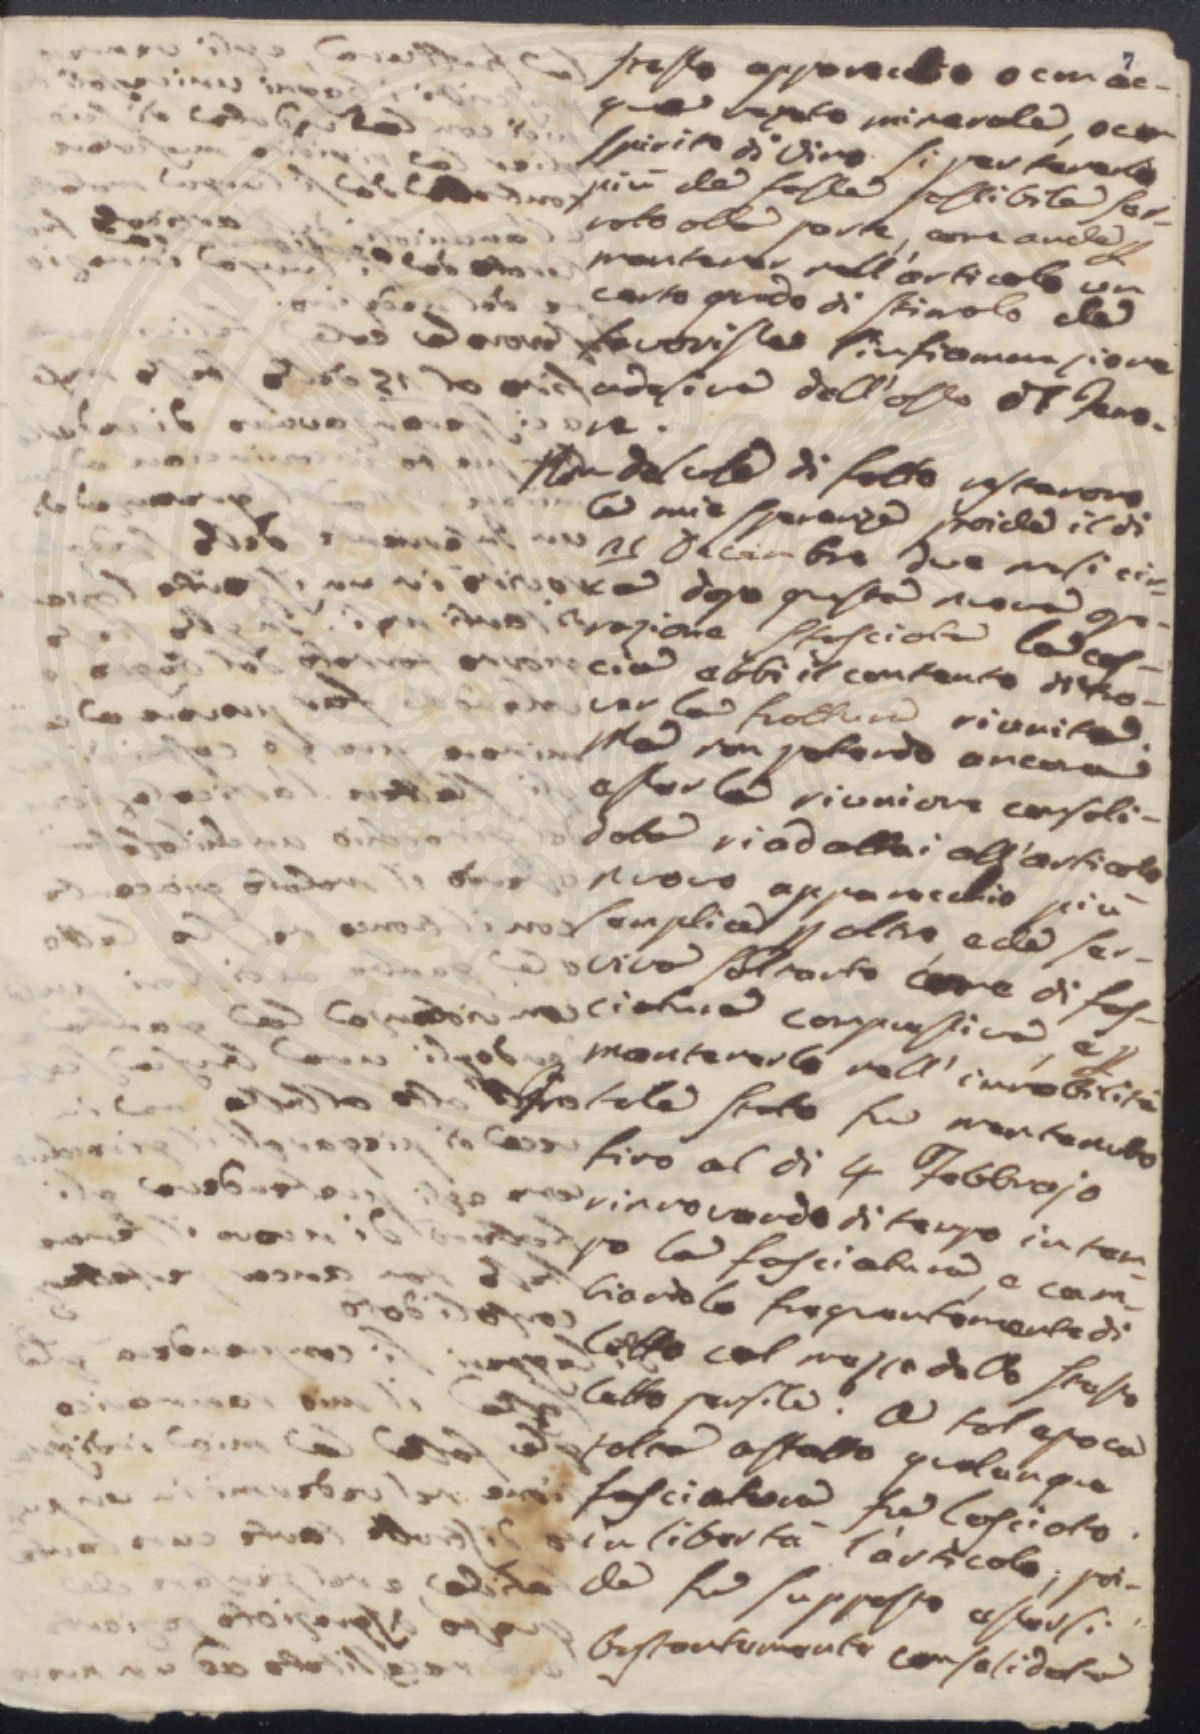 7
stesso apparecchio o con ac-
qua vegeto minerale, o con
spirito di Vino si per tenerlo
più che fosse possibile ser-
rato alle parte, come anche p
mantener nell'articolo un
certo grado di stimolo che
favorisse l'infiammazione
adesiva dell'osso del Femo-
re.
Non deluse di fatto restarono
le mie speranze poiche il di
Dicembre due mesi cir-
ca dopo questa nuova ope-
razione sfasciata la cos-
cia ebbi il contento di tro-
var la frattura riunita.
Ma non potendo ancora
esser la riunione consoli-
data riadattai all'articolo
nuovo apparecchio più
semplice p altro, e che ser-
viva soltanto come di fas-
ciatura compressiva, e p
mantenerlo nell'immobilità
tale stato fu mantenuto
fino al di 4 Febbrajo
rinnovando di tempo in tem-
po la fasciatura, e cam-
biandolo frequentemente di
letto col mezzo dello stesso
letto pensile. A tal epoca
tolta affatto qualunque
fasciatura fu lasciato
in libertà l'articolo, poi-
che fu supposto essersi
bastantemente consolidata